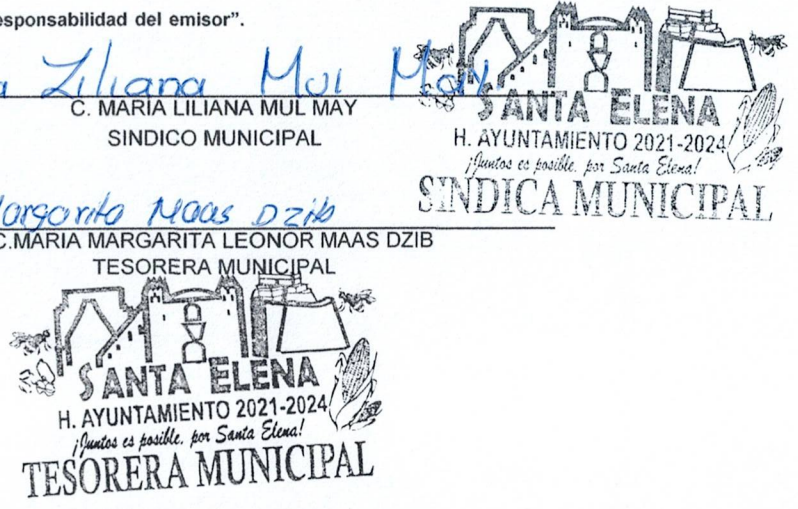 esponsabilidad del emisor”.
a Liliana Mul May
C. MARÍA LILIANA MUL MAY
SINDICO MUNICIPAL
SANTA ELENA
H. AYUNTAMIENTO 2021-2024
¡Juntos es posible, por Santa Elena!
SINDICA MUNICIPAL
Margarita Maas Dzib
C.MARIA MARGARITA LEONOR MAAS DZIB
TESORERA MUNICIPAL
SANTA ELENA
H. AYUNTAMIENTO 2021-2024
¡Juntos es posible, por Santa Elena!
TESORERA MUNICIPAL